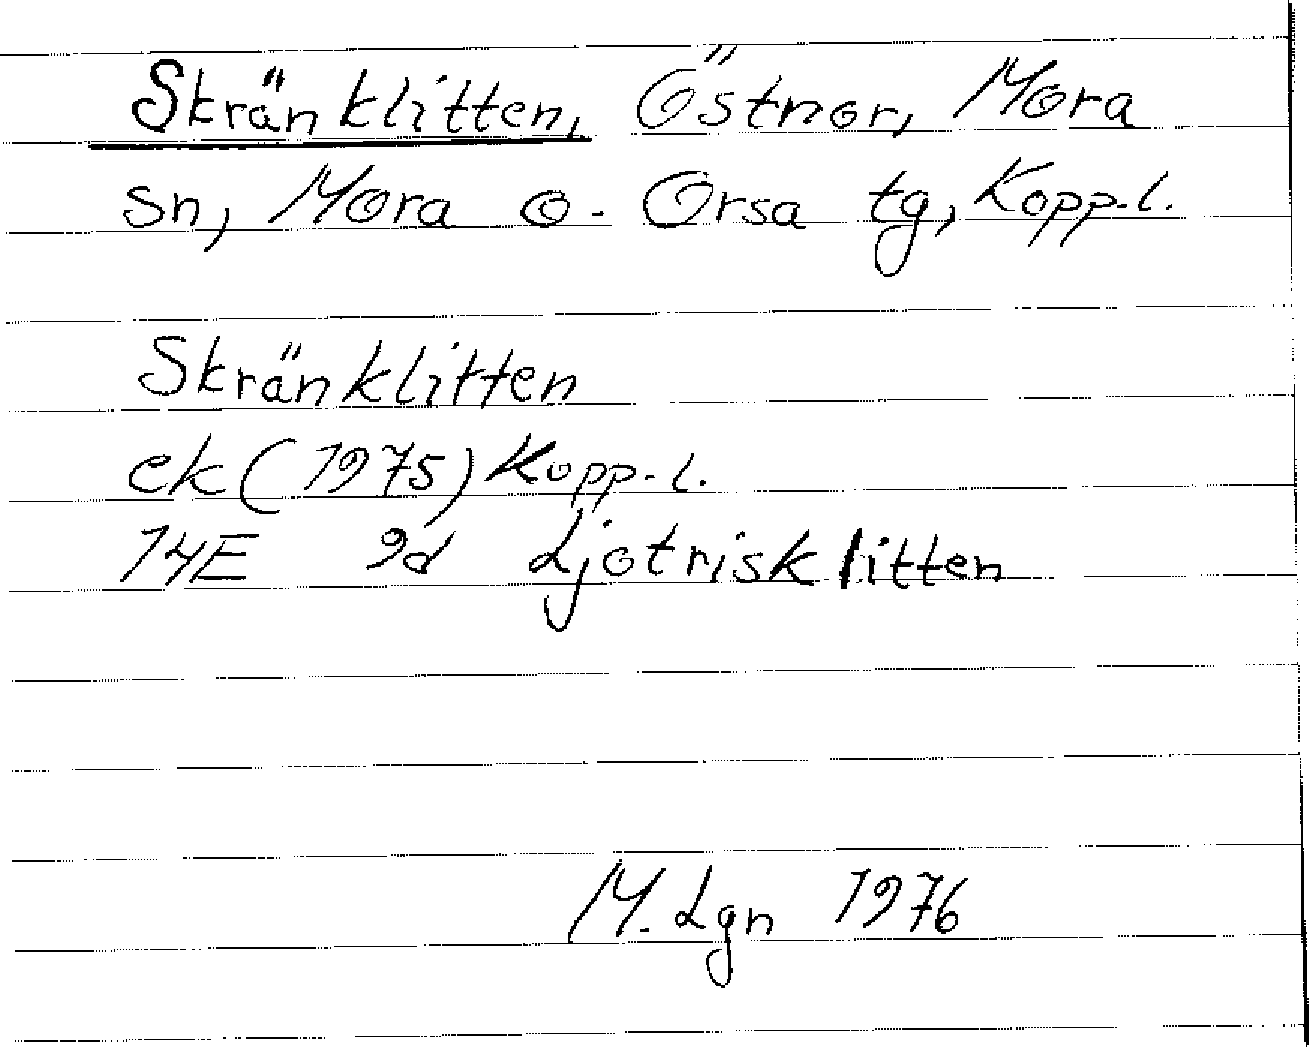 Skränklitten, Östnor, Mora
sn, Mora o. Orsa tg, Kopp.l.
Skränklitten
ek (1975) Kopp.l.
14E 9d Ljotrisklitten
M. Lgn 1976